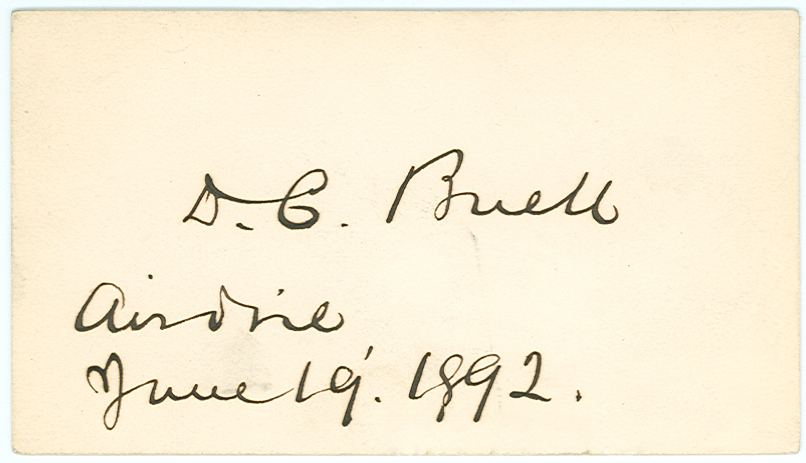 D. C. Buell
Airdrie
June 19'. 1892.